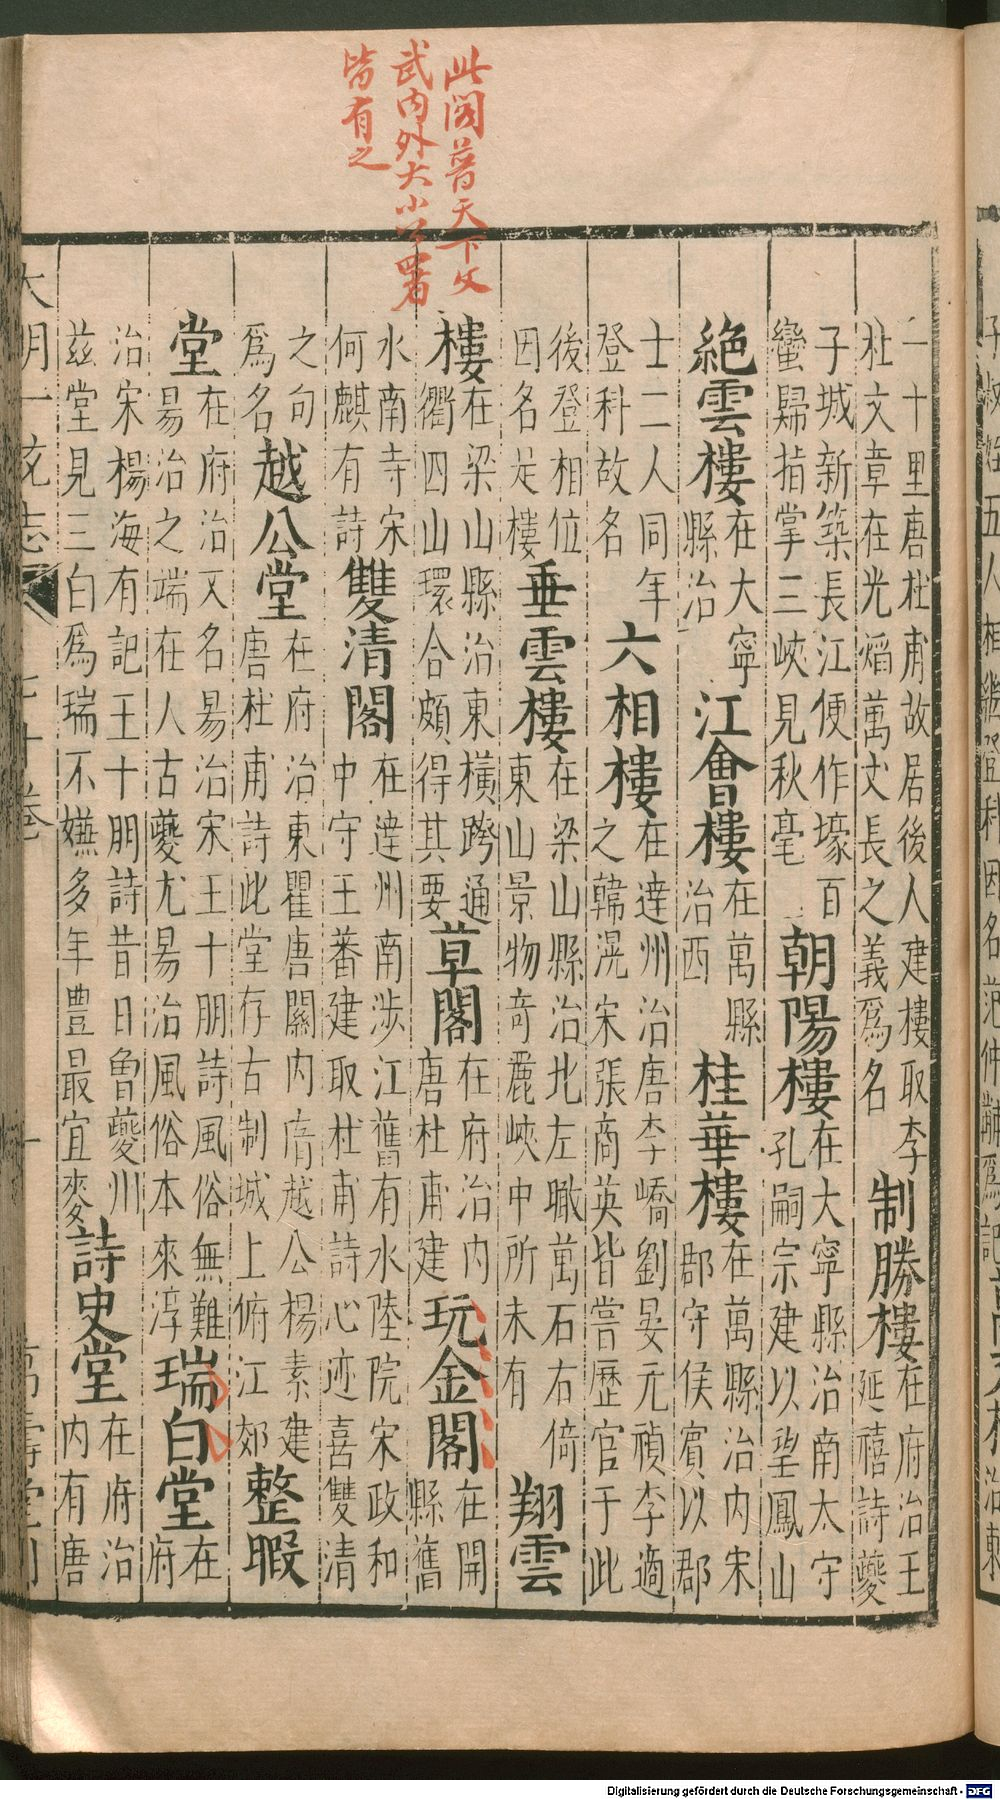 此閣普天下文
武内外大小公署
皆有之
一十里唐杜甫故居後人建樓取李杜文章在光焰萬丈長之義爲名制勝樓在府治王延禧詩夔
子城新築長江便作壕百蠻歸指掌三峽見秋毫朝陽樓在大寧縣治南太守孔嗣宗建以望鳳山
絶雲樓在大寧縣治江會樓在萬縣治西桂華樓在萬縣治内宋郡守侯賓以郡
士二人同年登科故名六相樓在達州治唐李嶠劉晏元稹李適之韓滉宋張商英皆嘗歷官于此
後登相位因名是樓垂雲樓在梁山縣治北左瞰萬石右倚東山景物奇麗峽中所未有翔雲
樓在梁山縣治東橫跨通衢四山環合頗得其要草閣在府治内唐杜甫建玩金閣在開縣舊
水南寺宋何麒有詩雙清閣在達州南涉江舊有水陸院宋政和中守王蕃建取杜甫詩心迹喜雙清
之句爲名越公堂在府治東瞿唐關内隋越公楊素建唐杜甫詩此堂存古制城上俯江郊整暇
堂在府治又名易治宋王十朋詩風俗無難易治之端在人古夔尤易治風俗本來淳瑞白堂在府
治宋楊海有記王十朋詩昔日魯夔川兹堂見三白爲瑞不嫌多年豊最宜麥詩史堂在府治内有唐
大明一統志
Digitalisierung gefördert durch die Deutsche Forschungsgemeinschaft - DFG